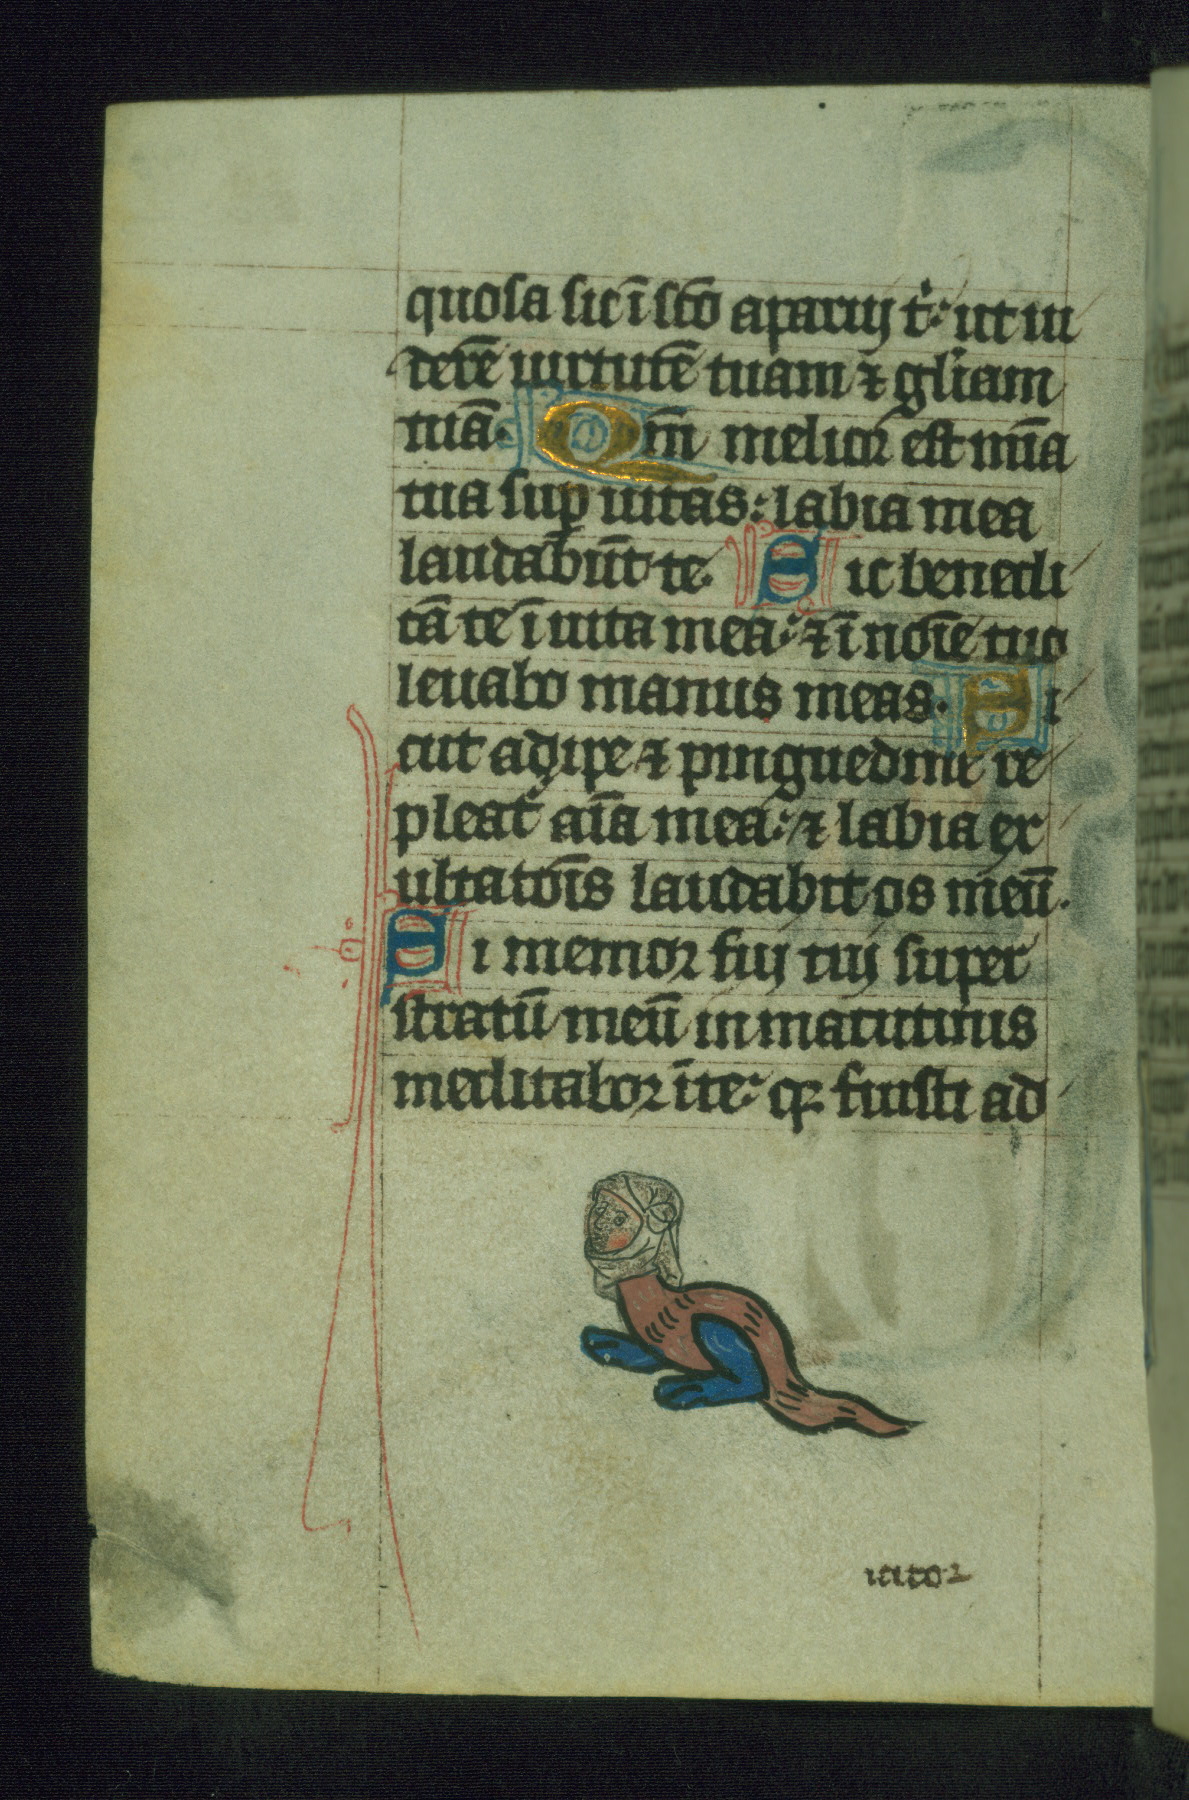 quosa sic ī sc̄o aparuij t̓: ut ui
derē uirtutē tuam ⁊ gl̓iam
tuā. Qm̄ melior est mīa
tua sup uitas: labia mea
laudabūt te. Sic benedi
cā te ī uita mea: ⁊ ī noīe tuo
leuabo manus meas. Si
cut adipe ⁊ pinguedine re
pleat̓ aīa mea: ⁊ labia ex
ultatōīs laudabit os meū.
Si memor fuij tuij super
stratū meū in matutinis
meditabor ī te: qꝛ fuisti ad
iutor